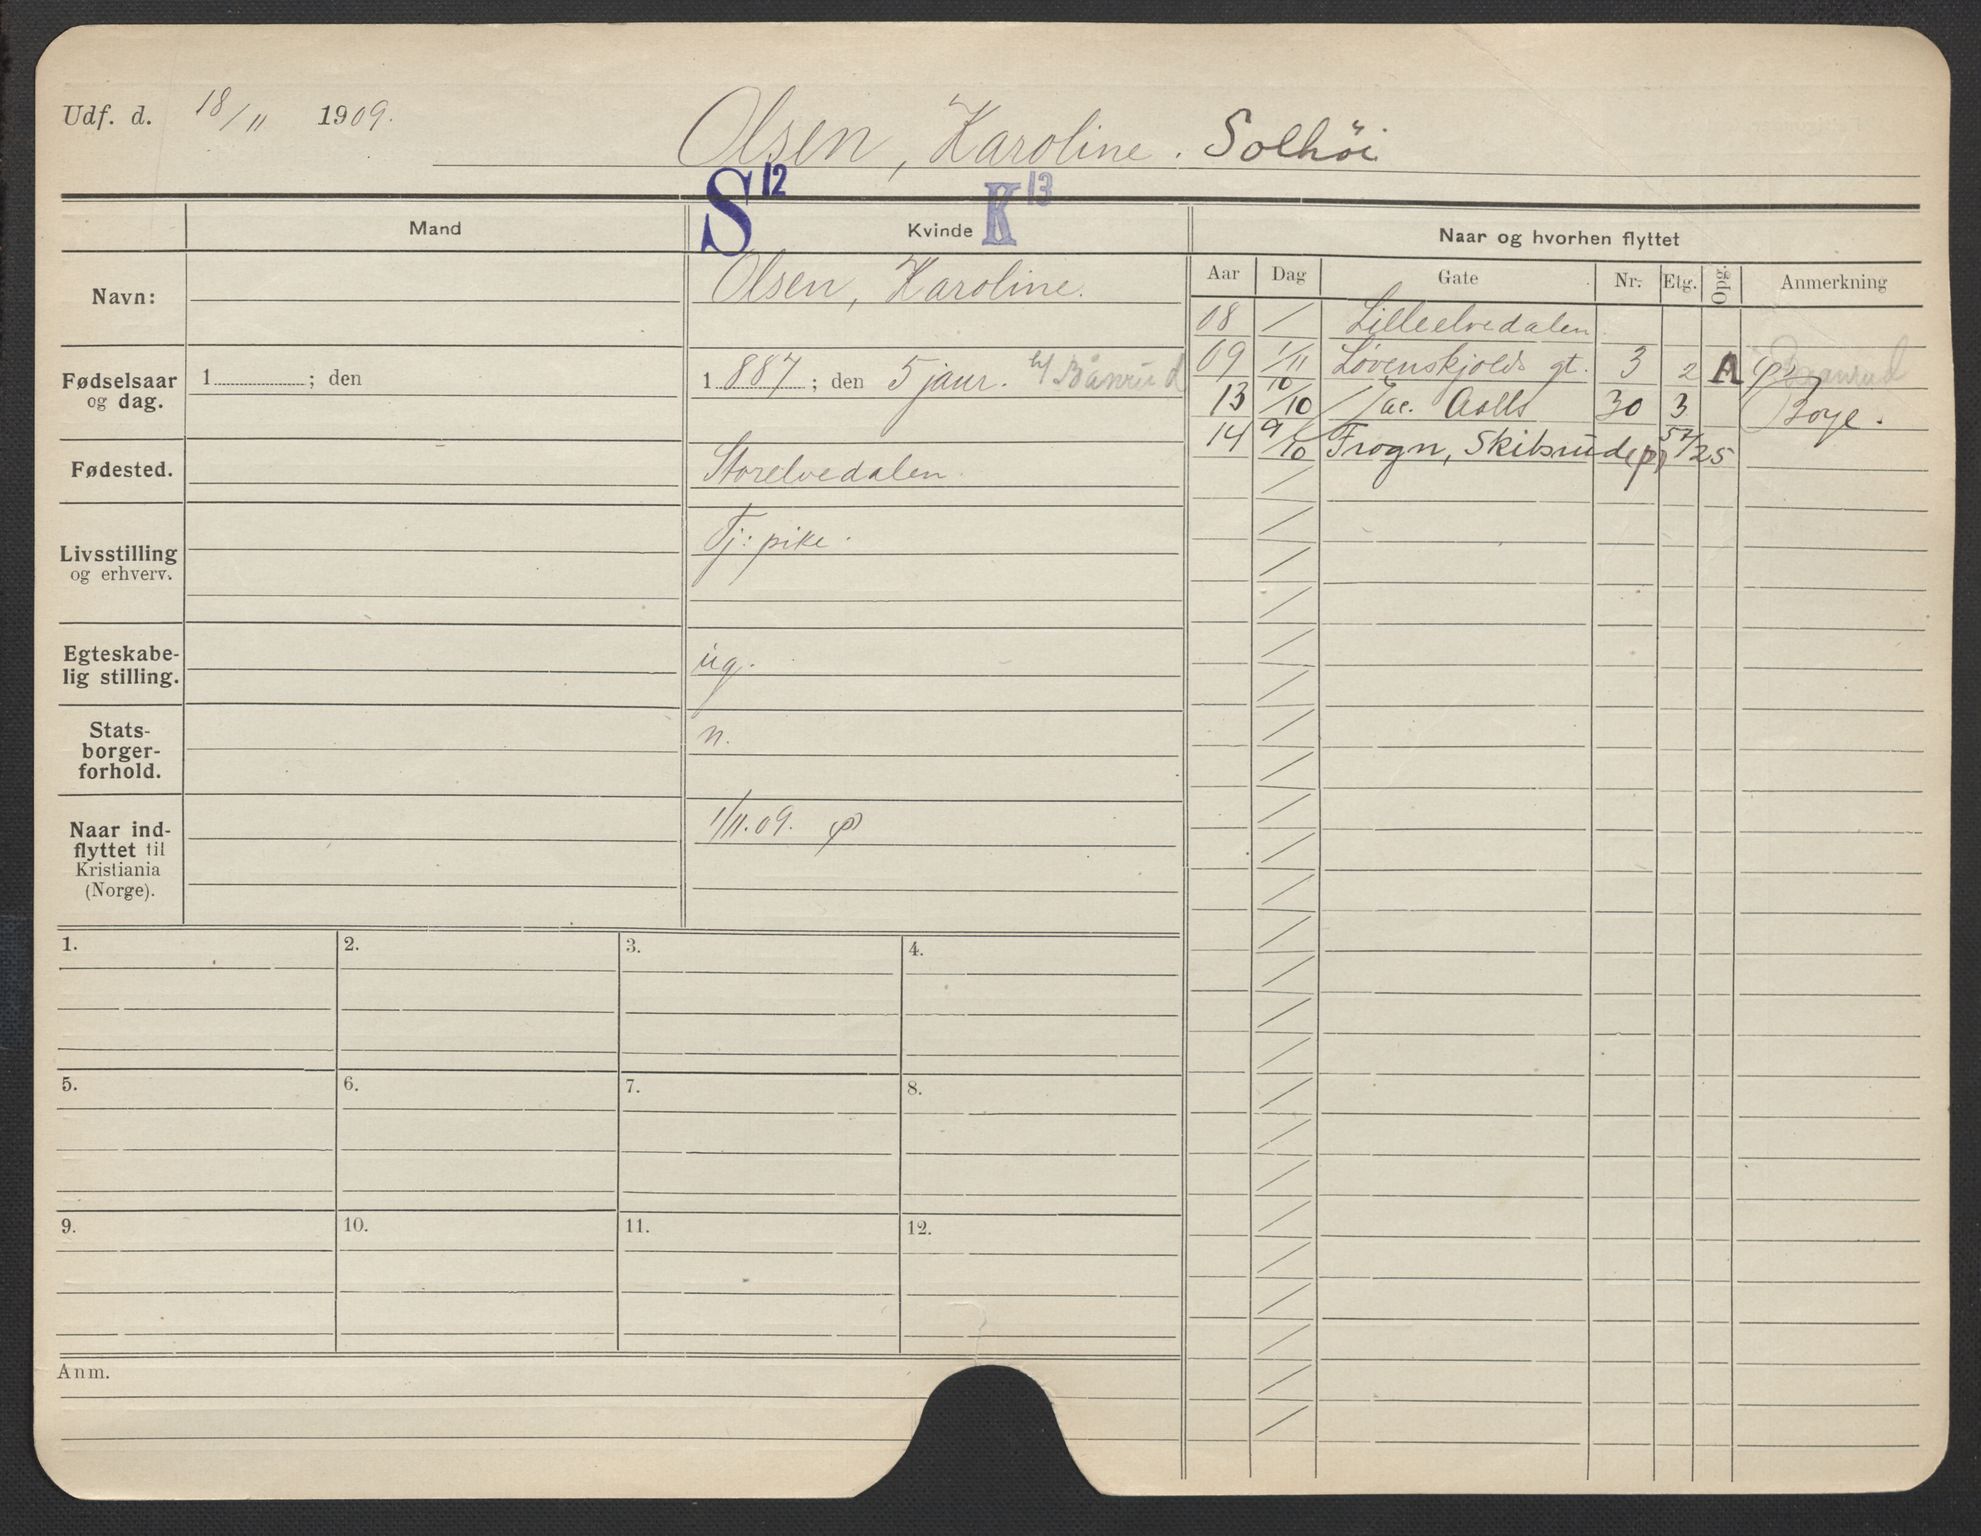 Udf. d. 18/11 1909.
Olsen, Karoline. Solhöi
S 12 K 13
Mand Kvinde Naar og hvorhen flyttet
Aar Dag Gate Nr. Etg. Opg. Anmerkning
Navn: Olsen, Karoline.
Fødselsaar og dag. 1 ; den
1 887 ; den 5 jaur. h/ Bånrud
Fødested. Storelvedalen.
Livsstilling og erhverv. Tj: pike.
Egteskabe-
lig stilling. ug.
Stats-
borger-
forhold. n.
Naar ind-
flyttet til
Kristiania
(Norge). 1/11.09. (p)
08 / Lilleelvedalen
09 1/11 Løvenskjolds gt. 3 2 A (p) Baanrud
13 10/10 Jac. Aalls 30 3 Boye.
14 9/10 Frogn, Skibsrud (p) 57/25
1. 2. 3. 4.
5. 6. 7. 8.
9. 10. 11. 12.
Anm.